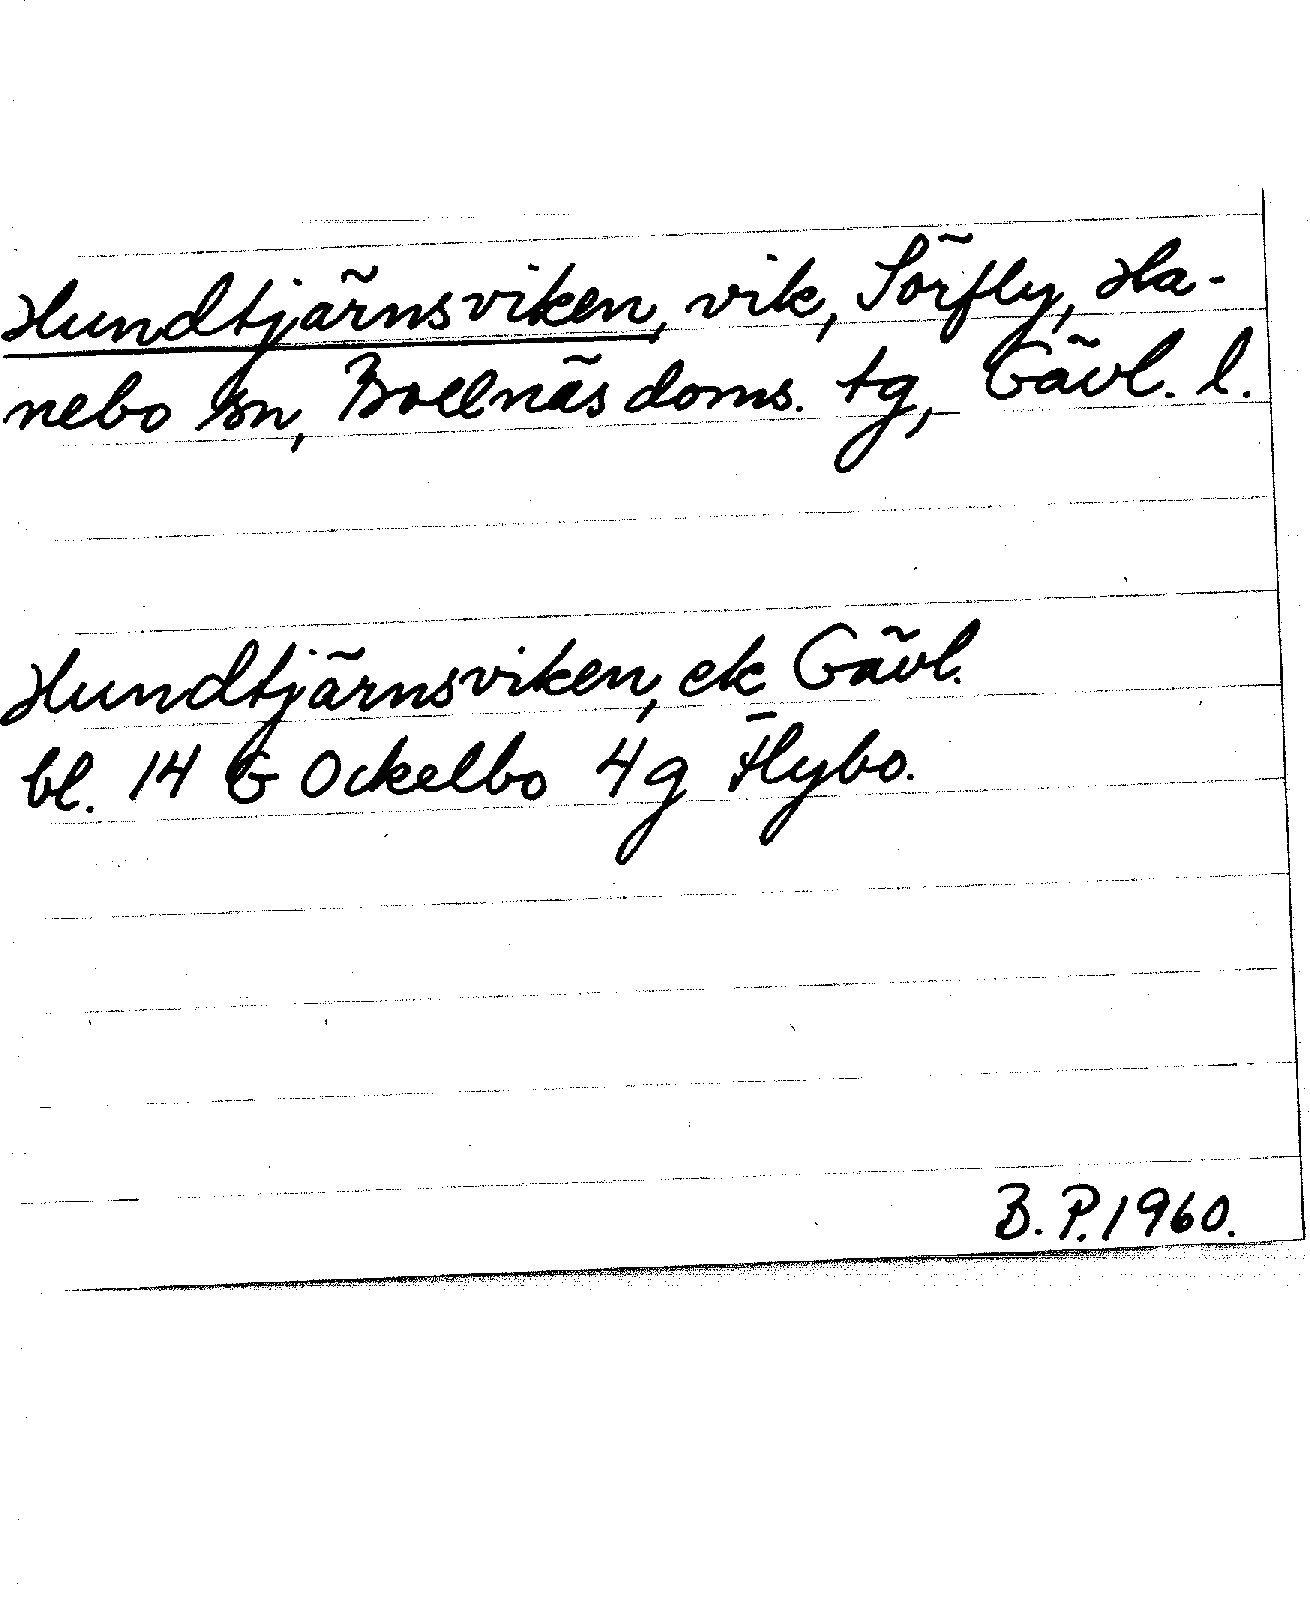 Hundtjärnsviken, vik, Sörfly, Ha-
nebo sn, Bollnäs doms. tg, Gävl. l.
Hundtjärnsviken, ek Gävl.
bl. 14 G Ockelbo 4g Flybo.
B. P. 1960.